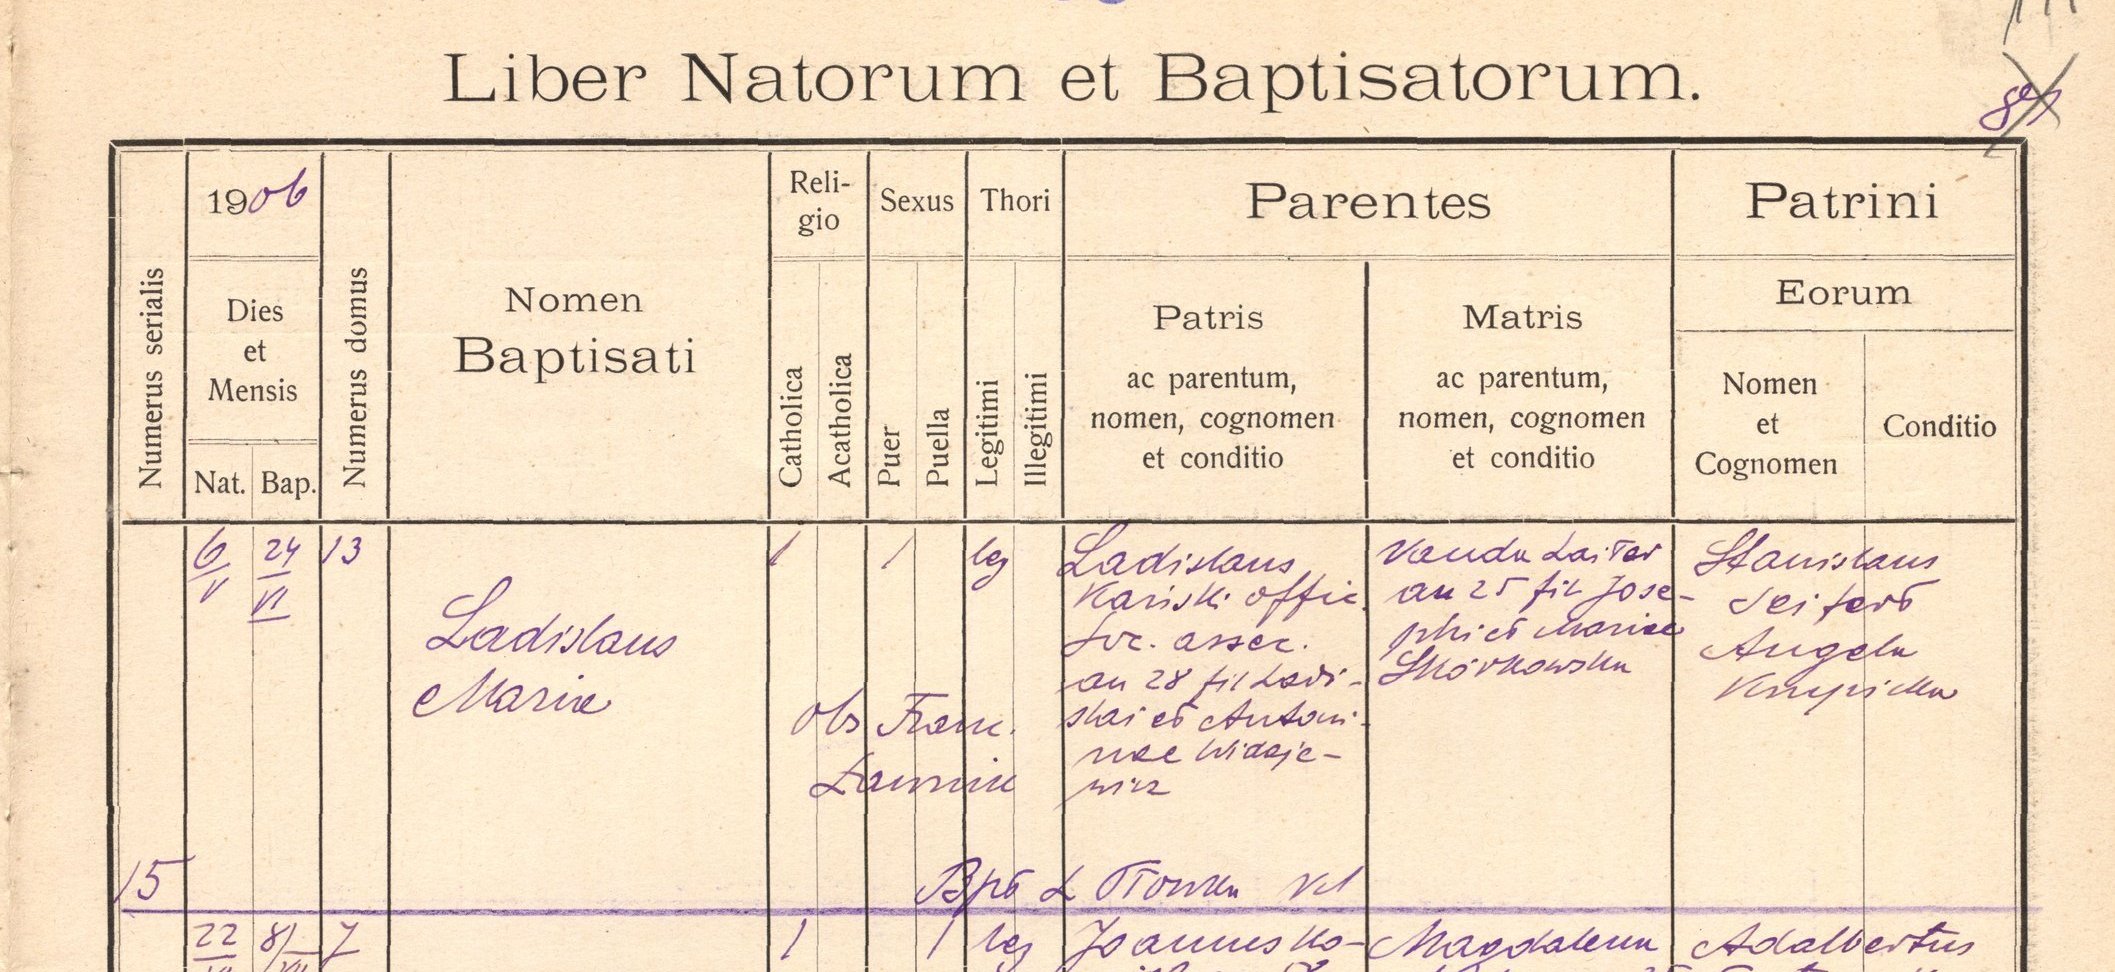 Liber Natorum et Baptisatorum.
Numerus serialis
1906
Dies
et
Mensis
Nat.
Bap.
Numerus domus
Nomen
Baptisati
Reli-
gio
Catholica
Acatholica
Sexus
Puer
Puella
Thori
Legitimi
Illegitimi
Parentes
Patris
ac parentum,
nomen, cognomen
et conditio
Matris
ac parentum,
nomen, cognomen
et conditio
Patrini
Eorum
Nomen
et
Cognomen
Conditio
15
6/V
24/VI
13
Ladislaus
Maria
1
1
leg
Obs Franc.
Ladislaus
Kariski offic.
soc. assec.
an 28 fil Ladi-
slai et Antoni-
nae Widaje-
wicz
Vanda
an 25 fil Jose-
phi et Mariae
Skórkowska
Stanislaus
Seifert
Angela
Krupicka
Bpt L
22
8/VII
7
1
1
leg
Joannes Ko-
Magdalena
Adalbertus